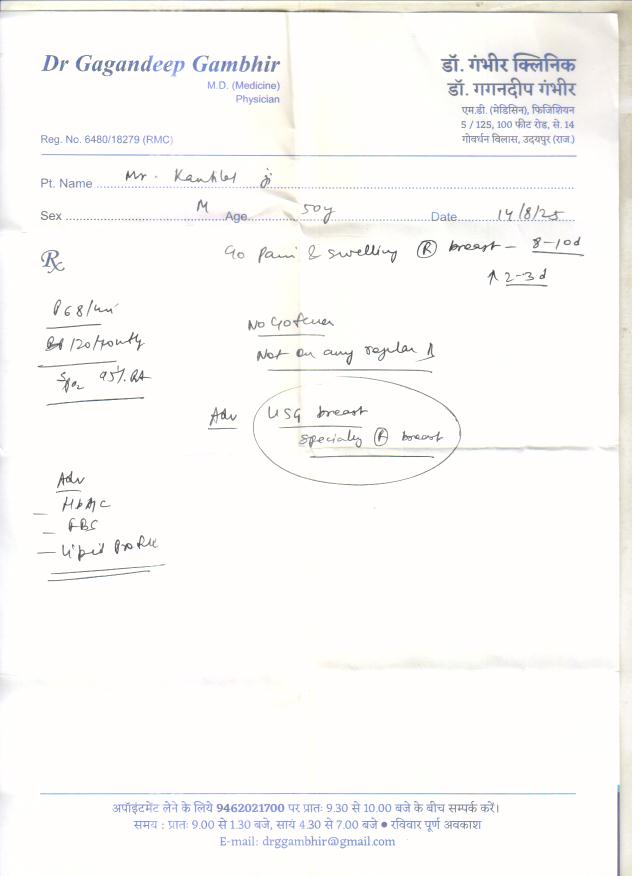 Dr Gagandeep Gambhir
M.D. (Medicine)
Physician
Reg. No. 6480/18279 (RMC)
डॉ. गंभीर क्लिनिक
डॉ. गगनदीप गंभीर
एम.डी. (मेडिसिन), फिजिशियन
5 / 125, 100 फीट रोड़, से. 14
गोवर्धन विलास, उदयपुर (राज.)
Pt. Name Mr.
Sex M Age 50y Date 14/8/25
Rx
C/o Pain & swelling (R) breast - 8-10d
↑ 2-3d
P 68/
120/
SPO2 95% RA
No C/o fever
Not on any regular
Adv USG breast
specially (R) breast
Adv
— HbA1c
—
— Lipid Profile
अपॉइंटमेंट लेने के लिये 9462021700 पर प्रातः 9.30 से 10.00 बजे के बीच सम्पर्क करें।
समय : प्रातः 9.00 से 1.30 बजे, सायं 4.30 से 7.00 बजे ● रविवार पूर्ण अवकाश
E-mail: drggambhir@gmail.com